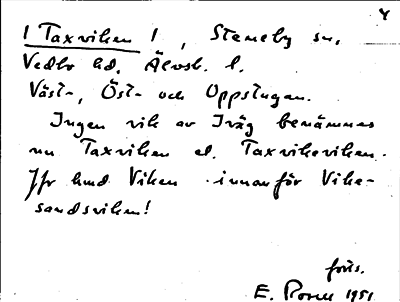 4
! Taxviken !, Steneby sn,
Vedbo hd, Älvsb. l.
Väst-, Öst- och Oppstugan.
Ingen vik av Iväg benämnes
nu Taxviken el. Taxvikeviken.
Jfr hmd Viken innanför Vike-
sandsviken!
forts.
E. Rosell 1951